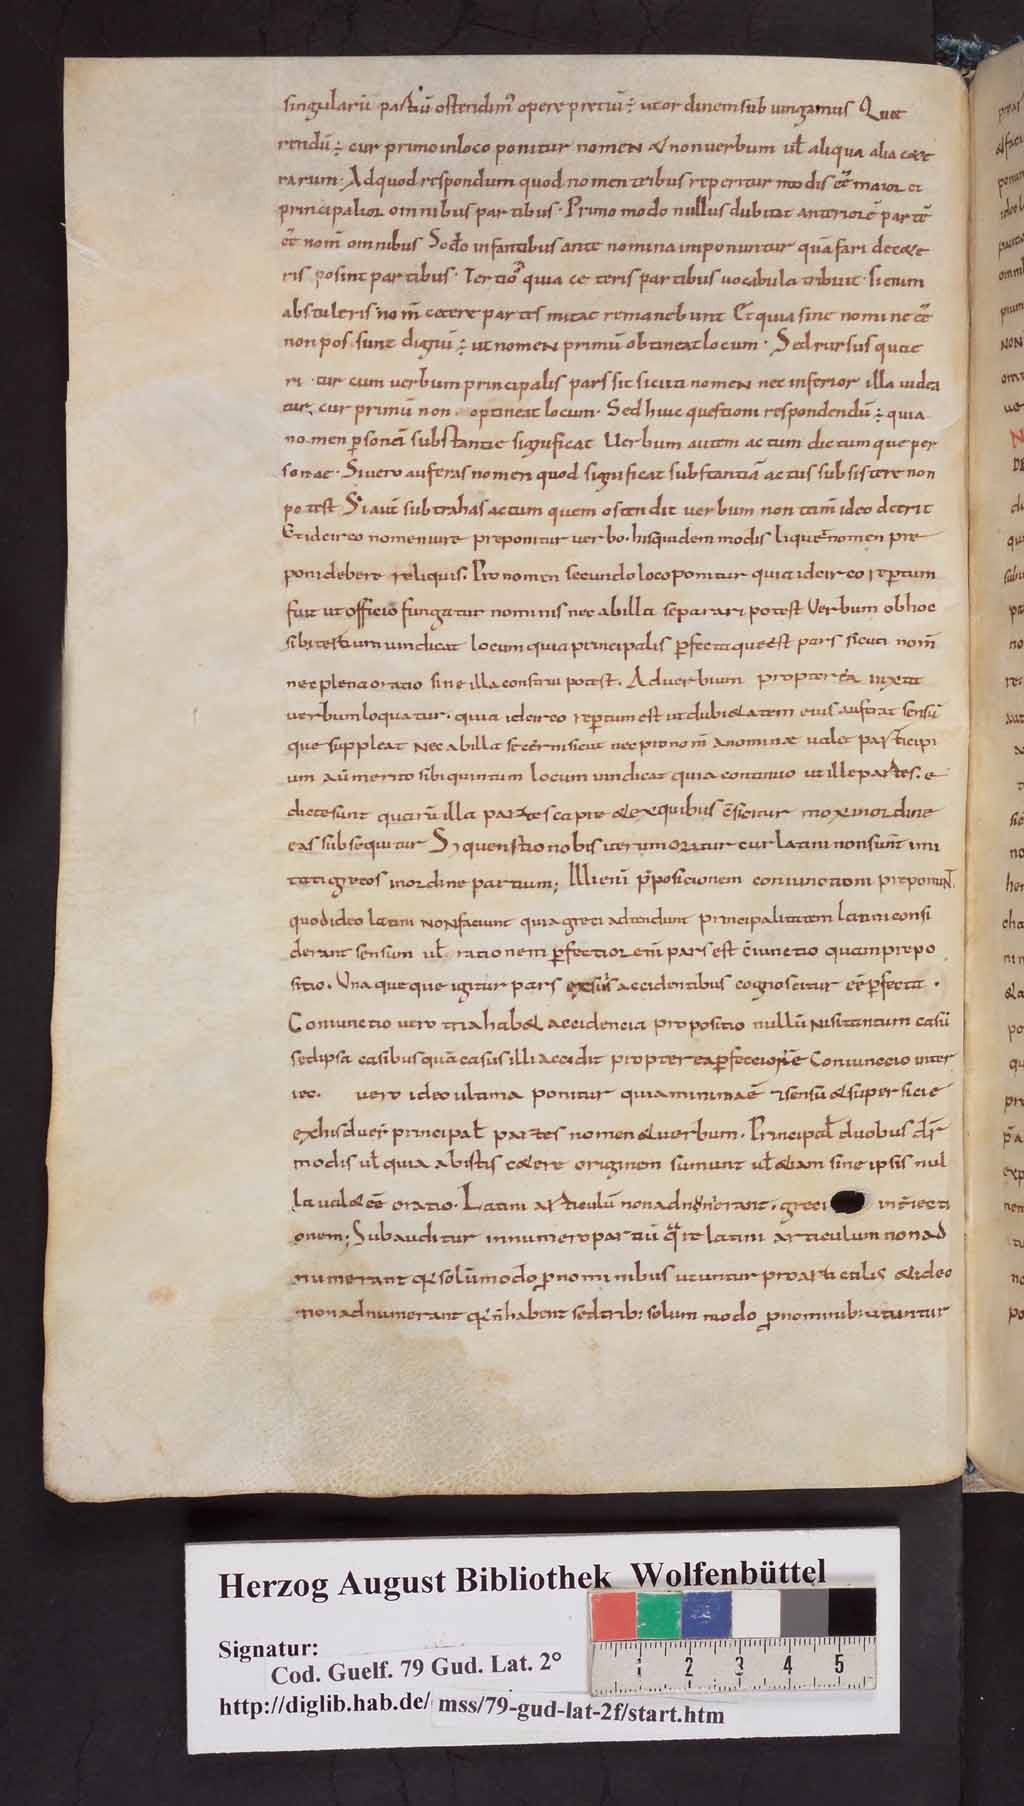 singularū partiū ostendim᷒ opere pretiū ÷ ut ordinem sub iungamus Quae
rendū ÷ cur primo in loco ponitur nomen & non uerbum ul̄ aliqua alia caete
rarum · Ad quod respondum quod nomen tribus reperitur modis eē maior et
principalior omnibus partibus · Primo modo nullus dubitat anteriorē partē
eē nom̄ omnibus Scdo infantibus ante nomina imponuntur quā fari de caete
ris posint partibus · Tertio quia ceteris partibus uocabula tribuit · si enim
abstuleris nom̄ cetere partes mutae remanebunt Et quia sine nomine eē
non possunt dignū ÷ ut nomen primū obtineat locum · Sed rursus quae
ri tur cum uerbum principalis pars sit sicuti nomen nec inferior illa uidea
tur, cur primū non optineat locum · Sed huic questioni respondendū ÷ quia
nomen p̱sonā substantiae significat Uerbum autem actum dictum que per
sonae · Si uero auferas nomen quod significat substantiā actus subsistere non
potest Si aut̄ subtrahas actum quem ostendit uerbum non tam̄ ideo deerit
Et idcirco nomen iure preponitur uerbo · his quidem modis liquet nomen pre
poni debere reliquis. Pronomen secundo loco ponitur quia idcirco rep̱tum
fuit ut officio fungatur nominis nec ab illa separari potest Verbum ob hoc
sibi tertium uindicat locum quia principalis p̱fectaque est pars sicuti nom̄
nec plena oratio sine illa construi potest. Aduerbium propterea iuxta
uerbum loquatur · quia idcirco rep̱tum est ut dubi&atem eius auferat sensū
que suppleat Nec ab illa secerni sicut nec pronom̄ a nominae ualet participi
um aū merito sibi quintum locum uindicat quia continuo ut ille partes. e
dicte sunt quarū illa partes capte & ex quibus c̄ficitur mox in ordine
eas subsequitur Sꝫ questio nobis iterum oritur cur latini non sunt imi
tati grecos in ordine partium; Illi enī p̄posicionem coniunctioni preponuN̄
quod ideo latini non faciunt quia greci adtendunt principalitatem latini consi
derant sensum ul̄ rationem p̱fectior eni pars est c̄iunctio quam prepo
sitio. Una queque igitur pars ex suis accidentibus cognoscitur eē p̱fecta ·
Coniunctio uero tria hab& accidencia propositio nullū nisi tantum casū
sed ipsā casibus quā casus illi accidit propterea p̱feccior ē Coniunccio inter
iec. uero ideo ultima ponitur quia minima ē & sensū & superficie
ex his due s̄ principal̄ partes nomen & uerbum · Principal̄ duobus dr̄
modis ul̄ quia ab istis caetere originem sumunt ul̄ &iam sine ipsis nul
la ual& eē oratio · Latini articulū non adnumerant · greci int̄iecti
onem; Subauditur in numero partiū quare latini articulum non ad
numerant qꝫ solūmodo p̱nominibus utuntur pro articulis & ideo
non adnumerant qꝫ n̄ habent sed trib: solum modo p̱nominib: utuntur
Herzog August Bibliothek Wolfenbüttel
Signatur:
Cod. Guelf. 79 Gud. Lat. 2°
http://diglib.hab.de/ mss/79-gud-lat-2f/start.htm
1 2 3 4 5